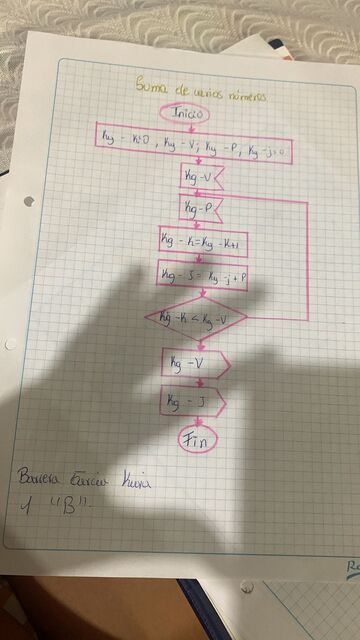 Suma de varios números
Inicio
Kg - K=0, Kg - V; Kg - P, Kg - j=0
Kg - V
Kg - P
Kg - K = Kg - K+1
Kg - J = Kg - j + P
Kg - K < Kg - V
Kg - V
Kg - J
Fin
Barrera García
1 "B".